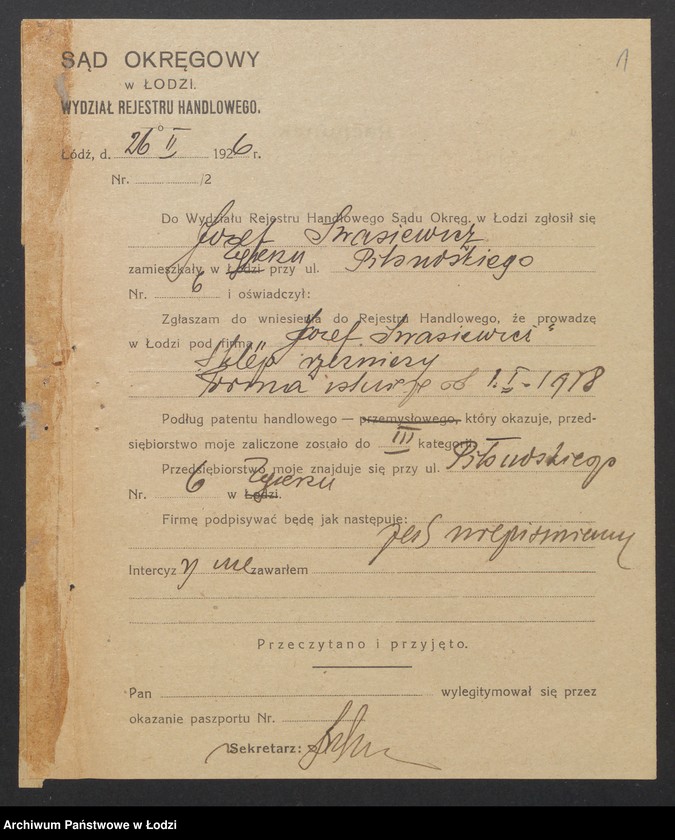 1
SĄD OKRĘGOWY
w ŁODZI.
WYDZIAŁ REJESTRU HANDLOWEGO.
Łódź, d. 26 II 1926 r.
Nr. /2
Do Wydziału Rejestru Handlowego Sądu Okręg. w Łodzi zgłosił się
Józef Swasiewicz
zamieszkały w Łodzi Zgierzu przy ul. Piłsudskiego
Nr. 6 i oświadczył:
Zgłaszam do wniesienia do Rejestru Handlowego, że prowadzę
w Łodzi pod firmą „Józef Swasiewicz"
Sklep rzeźniczy
Firma istnieje od 1.I-1918
Podług patentu handlowego — przemysłowego, który okazuje, przed-
siębiorstwo moje zaliczone zostało do III kategorji.
Przedsiębiorstwo moje znajduje się przy ul. Piłsudskiego
Nr. 6 w Łodzi. Zgierzu
Firmę podpisywać będę jak następuje:
jest niepiśmienny
Intercyzy nie zawarłem
Przeczytano i przyjęto.
Pan wylegitymował się przez
okazanie paszportu Nr.
Sekretarz:
Archiwum Państwowe w Łodzi